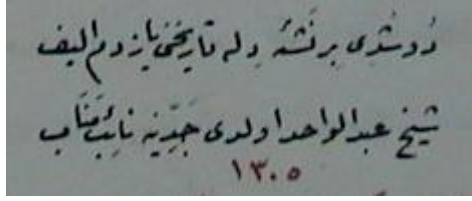 دوشدی بر نشئه دله تاریخنی یازدم الیف
شیخ عبدالواحد اولدی جدینه نائب مناب
١٣٠٥